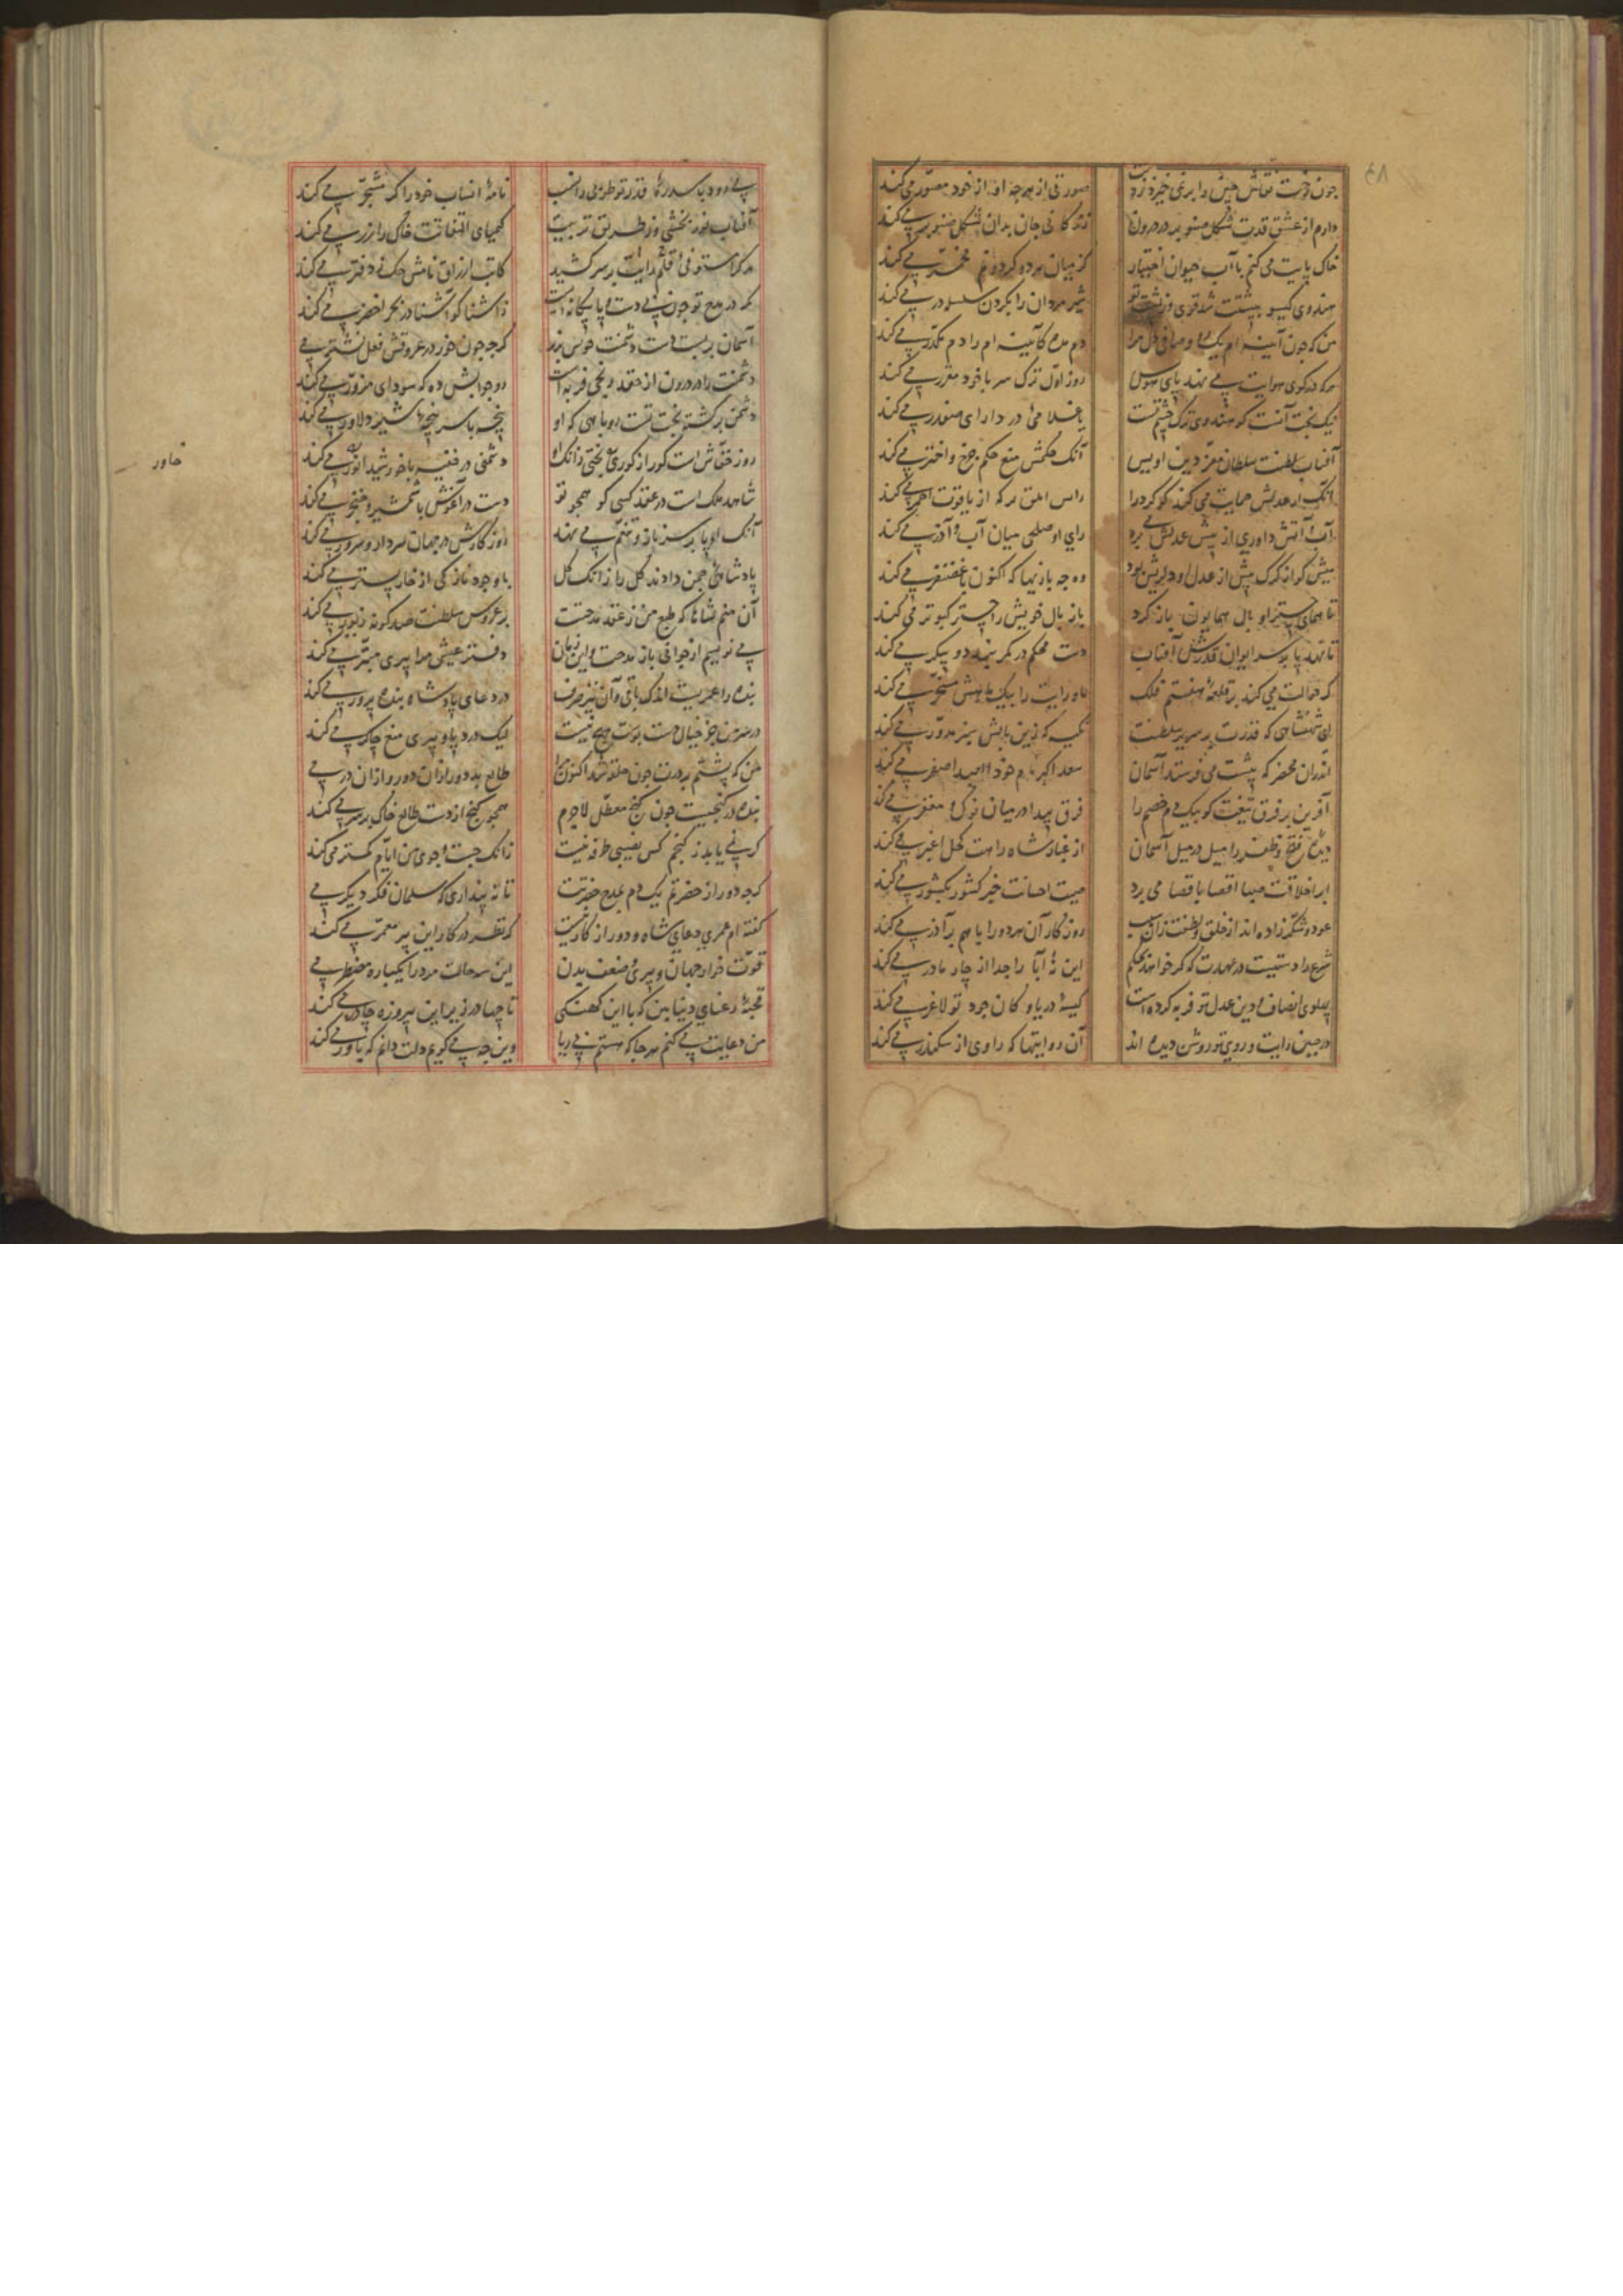 ۴۸
چون رخت نقاش چین را بر نمی خیزد ز دست
صورتی از هرچه او از خود مصور می کند
دارم از عشق قدت شکل صنوبر در درون
زندگانی جان بدان شکل صنوبر می کند
خاک پایت می کنم با آب حیوان اختیار
کز میان هر دو کردونم مخیر می کند
هندوی کیسو بپشتت شد قوی
شیر مردان را بکردن سلسله در می کند
من که چون آینه ام یک رو و صافی دل مرا
دم مده کآیینه ام را دم مکدر می کند
هرکه در کوی هوایت می نهد پای هوس
روز اول ترک سر با خود مقرر می کند
نیک بخت آنست کو هندوی ترک چشم تست
یا غلامی در دارای صفدر می کند
آفتاب سلطنت سلطان معز دین اویس
آنک حکمش منع حکم چرخ و اختر می کند
آنک ار عدلش حمایت می کند کوکرد را
آب و آتش داوری از پیش عدلش می برد
رای او صلحی میان آب و آذر می کند
میش کو از کرک پیش از عدل او دلریش بود
وه چه بازیها که اکنون با غضنفر می کند
تا همای چتر او بال همایون باز کرد
باز بال خویش را چتر کبوتر می کند
تا نهد پا بر سر ایوان قدرش آفتاب
دست محکم در کمر بند دو پیکر می کند
که حوالت می کند بر قلعه هفتم فلک
ماه رایت را بیک ماهش مسخر می کند
ای شهنشاهی که قدرت بر سریر سلطنت
تکیه که زین بالش سبز مدور می کند
اندران محضر که پیشت می فرستد آسمان
سعد اکبر نام خود العبد اصغر می کند
آفرین بر فرق تیغت کو بیک دم خصم را
فرق پیدا در میان ترک و مغفر می کند
دیده فتح و ظفر را میل در میل آسمان
از غبار شاه راهت کحل اغبر می کند
ابر اخلاقت صبا اقصا باقصا می برد
صیت احسانت خبر کشور بکشور می کند
عود و شکر زاده اند از خلق و لطفت زان سبب
روزکار آن هر دو را با هم برآذر می کند
شرع را دستیست در عهدت که کر خواهد بحکم
این نه آبا را جدا از چار مادر می کند
پهلوی انصاف و دین عدل تو فربه کرده است
کیسه دریا و کان جود تو لاغر می کند
در جبین رایت و روی تو روشن دیده اند
آن روایتها که راوی از سکندر می کند
نامه انساب خود را کر مشجر می کند
آفتاب نور بخشی وز طریق تربیت
کیمیای التفاتت خاک را زر می کند
هرکرا مستوفی قلم رایت بر سر کشید
کاتب ارزاق نامش حک ز دفتر می کند
که در مدح تو چون من بی دست و پا بیکانه ایست
زآشنا کو آشنا در بحر اخضر می کند
آسمان بر بست دست دشمنت خونش بریز
کرچه چون خور در عروقش فعل نشتر می کند
دشمنت را در درون از حقد رنجی فربه است
رو جوابش ده که سودای مزور می کند
دشمن برکشته بخت تست روباهی که او
پنجه با سر پنجه شیر دلاور می کند
روز خفاش است کور از کوری و بختی زانک او
دشمنی در خفیه با خورشید انور می کند
خاور
شاهد ملک است در عقد کسی کو همچو تو
دست در آغوش با شمشیر و خنجر می کند
آنک او پا بر سر ناز و تنعم می نهد
روزکارش در جهان سردار و سرور می کند
پادشاهی چمن دادند کل را زانک کل
با وجود نازکی از خار بستر می کند
آن منم شاها که طبع من ز عقد مدحتت
بر عروس سلطنت صد کونه زیور می کند
می نویسم از جوانی باز مدحت و این زمان
دفتر عیش مرا پیری مبتر می کند
بنده را عمریست اندک باقی و آن نیز صرف
در دعای پادشاه بنده پرور می کند
در سر من جز خیال دست بوست هیچ نیست
لیک درد پا و پیری منع چاکر می کند
من که پشتم بر درت چون حلقه شد اکنون مرا
طالع بد دور ازان دور و ازان در می کند
بنده در کنجیست چون کنج معطل لاجرم
همچو کنج از دست طالع خاک بر سر می کند
کر نمی یابد ز کنجم کس نصیبی طرفه نیست
زانک جست و جوی من ایام کمتر می کند
کرچه دور از حضرتم یک دم بمدح حضرتت
تا نه پنداری که سلمان فکر دیکر می کند
کفته ام عمری دعای شاه و دور از کار نیست
که نظر در کار این پیر معمر می کند
قوت خرار جهان و پیری و ضعف بدن
این سه حالت مرد را یکباره مضطر می کند
قحبه رعنای دنیا بین که با این کهنکی
تا چها در زیر این پیروزه چادر می کند
من دعایت می کنم هرجا که هستم بی ریا
وین چه می کویم دلت دانم که باور می کند